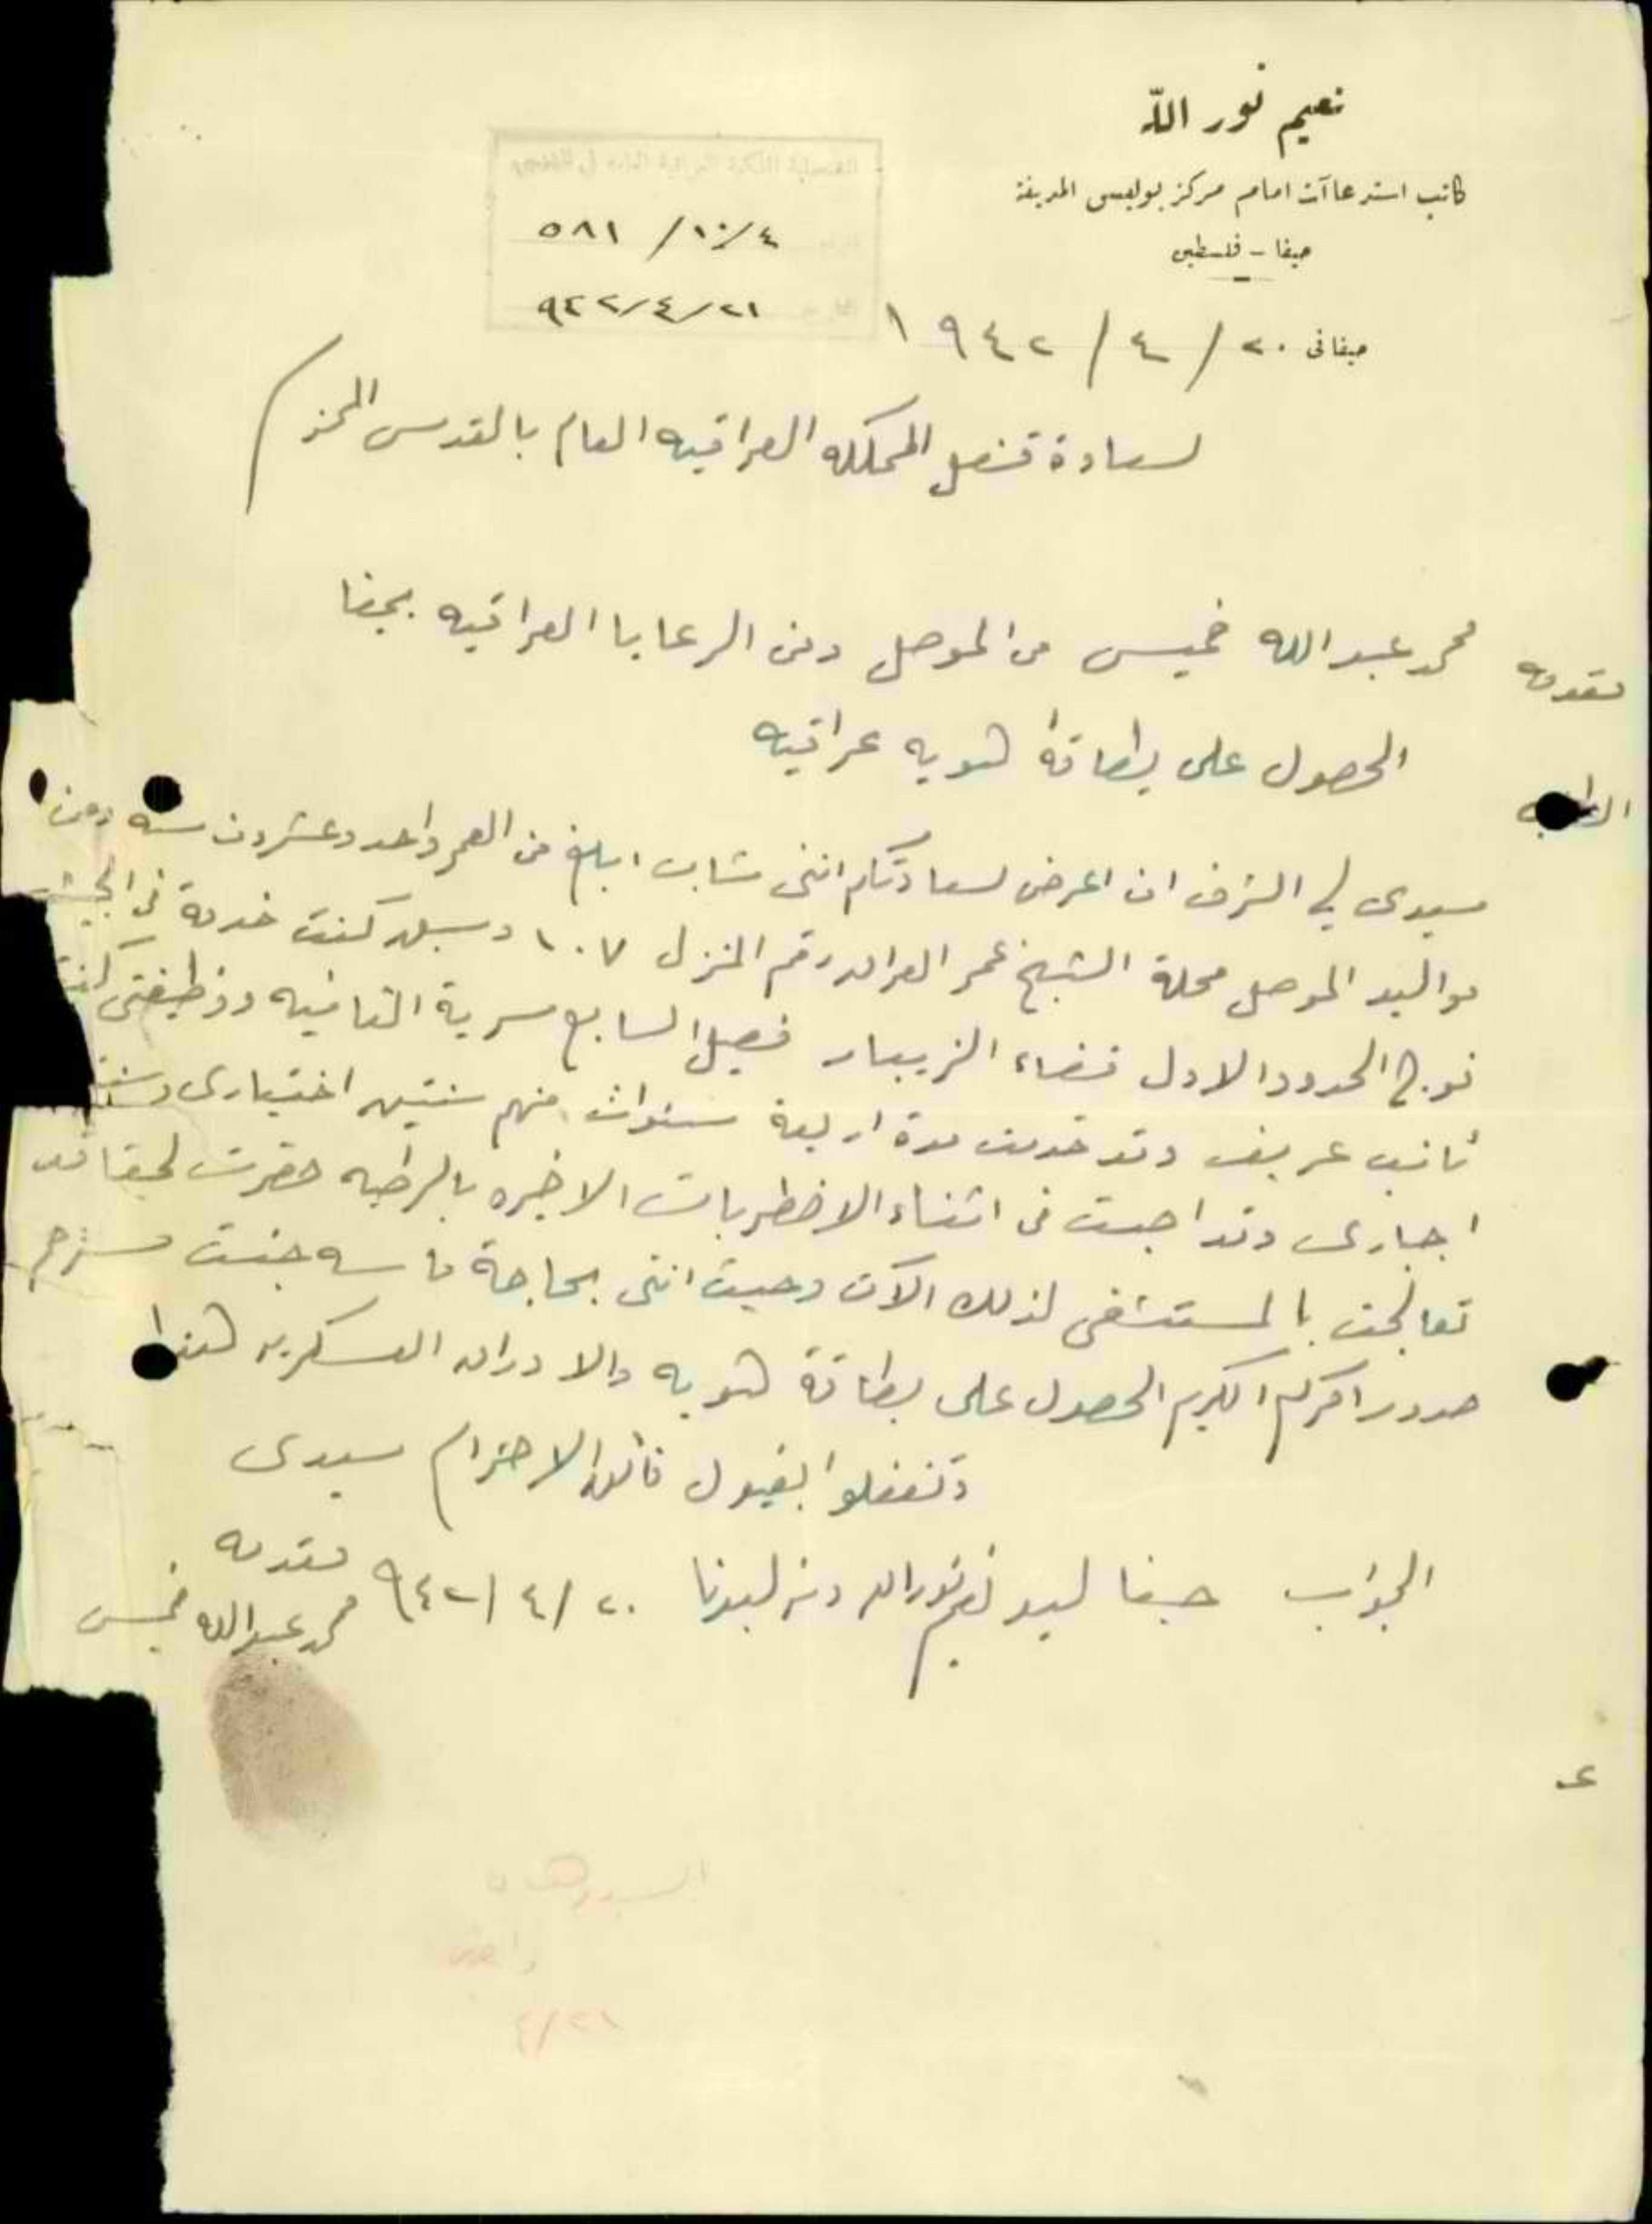 نعيم نور الله
كاتب استدعاآت امام مركز بوليس المدينة
حيفا - فلسطين
القنصلية الملكية العراقية العامة في القدس
٥٨١ /١٠/٤
٩٤٢/٤/٢١
حيفا في ٢٠ / ٤ / ١٩٤٢
لسعادة قنصل المملكه العراقيه العام بالقدس المحترم
مقدمه محمد عبد الله خميس من الموصل ومن الرعايا العراقيه بحيفا
الحصول على بطاقة هويه عراقيه
سيدي لي الشرف ان اعرض لسعادتكم انني شاب ابلغ من العمر واحد وعشرون سنه ومن
مواليد الموصل محلة الشيخ عمر رقم المنزل ١٠٧ و كنت خدمة في الجيش
فوج الحدود الاول قضاء الزيبار فصيل السابع سرية الثانيه ووظيفتي كنت
نائب عريف وقد خدمت مدة اربعة سنوات منهم سنتين اختياري وسنتين
اجباري وقد اصبت في اثناء الاضطربات الاخيره بالرطبه حضرت لحيفا
تعالجت بالمستشفى لذلك الآن وحيث انني بحاجة ماسه جئت مسترحم
صدور امركم الكريم الحصول على بطاقة هويه والاوراق العسكريه هذا
وتفضلوا بقبول فائق الاحترام سيدي
الجواب حيفا ليد نعيم نور الله ومنه ليدنا ٢٠ /٤ /٩٤٢ مقدمه
محمد عبد الله خميس
٤/٢١